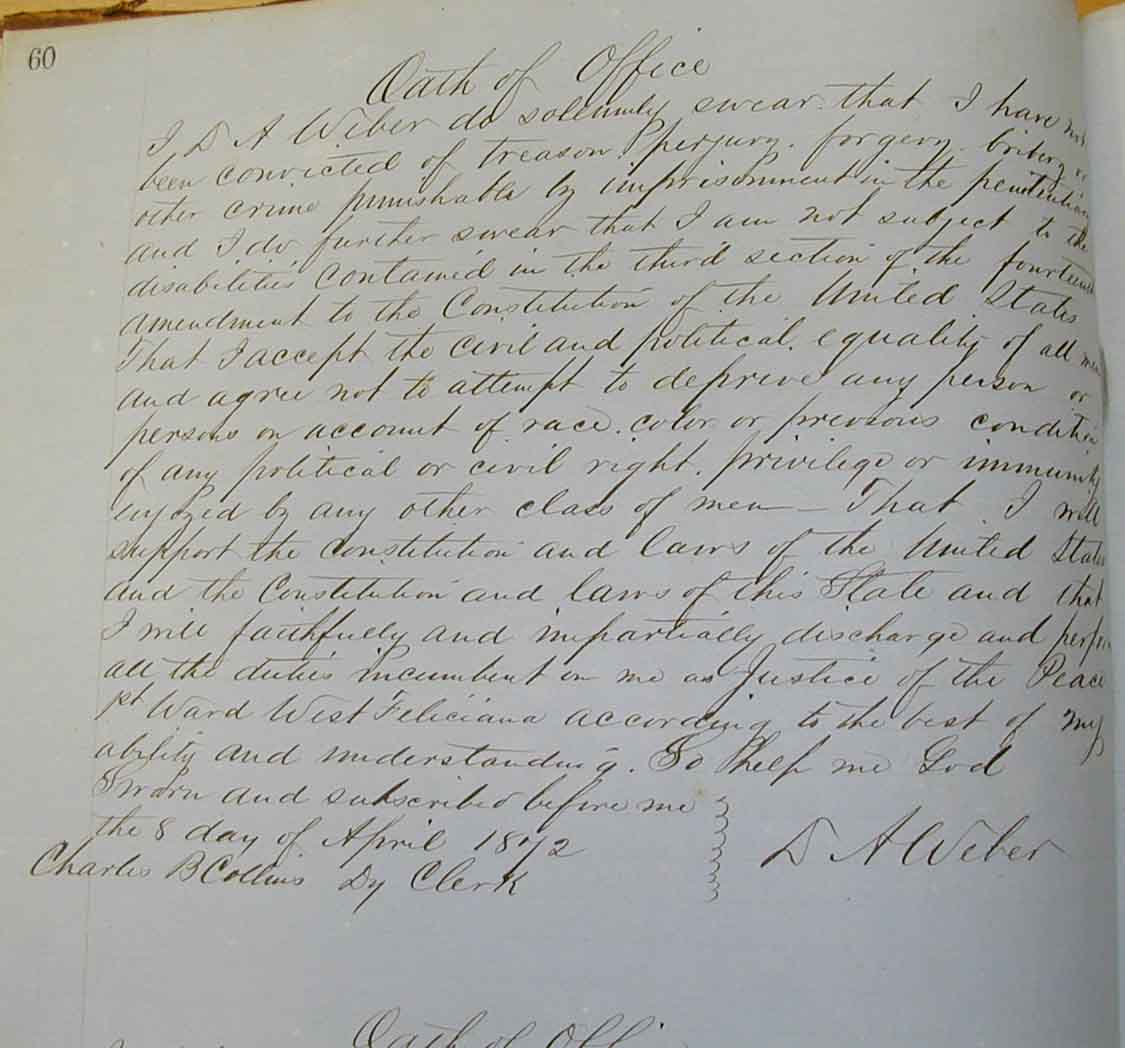 60
Oath of Office
I D A Weber do sollemnly swear that I have not
been convicted of treason, perjury, forgery, bribery or
other crime punishable by imprisonment in the penitentiary
and I do further swear that I am not subject to the
disabilities contained in the third section of the fourteenth
amendment to the Constitution of the United States
That I accept the civil and political equality of all men
and agree not to attempt to deprive any person or
persons on account of race, color or previous condition
of any political or civil right, privilege or immunity
enjoyed by any other class of men — That I will
support the constitution and laws of the United States
and the Constitution and laws of this State and that
I will faithfully and impartially discharge and perform
all the duties incumbent on me as Justice of the Peace
Ward West Feliciana according to the best of my
ability and understanding. So help me God
Sworn and subscribed before me
the 8 day of April 1872
D A Weber
Charles B Collins Dy Clerk
Oath of Offi